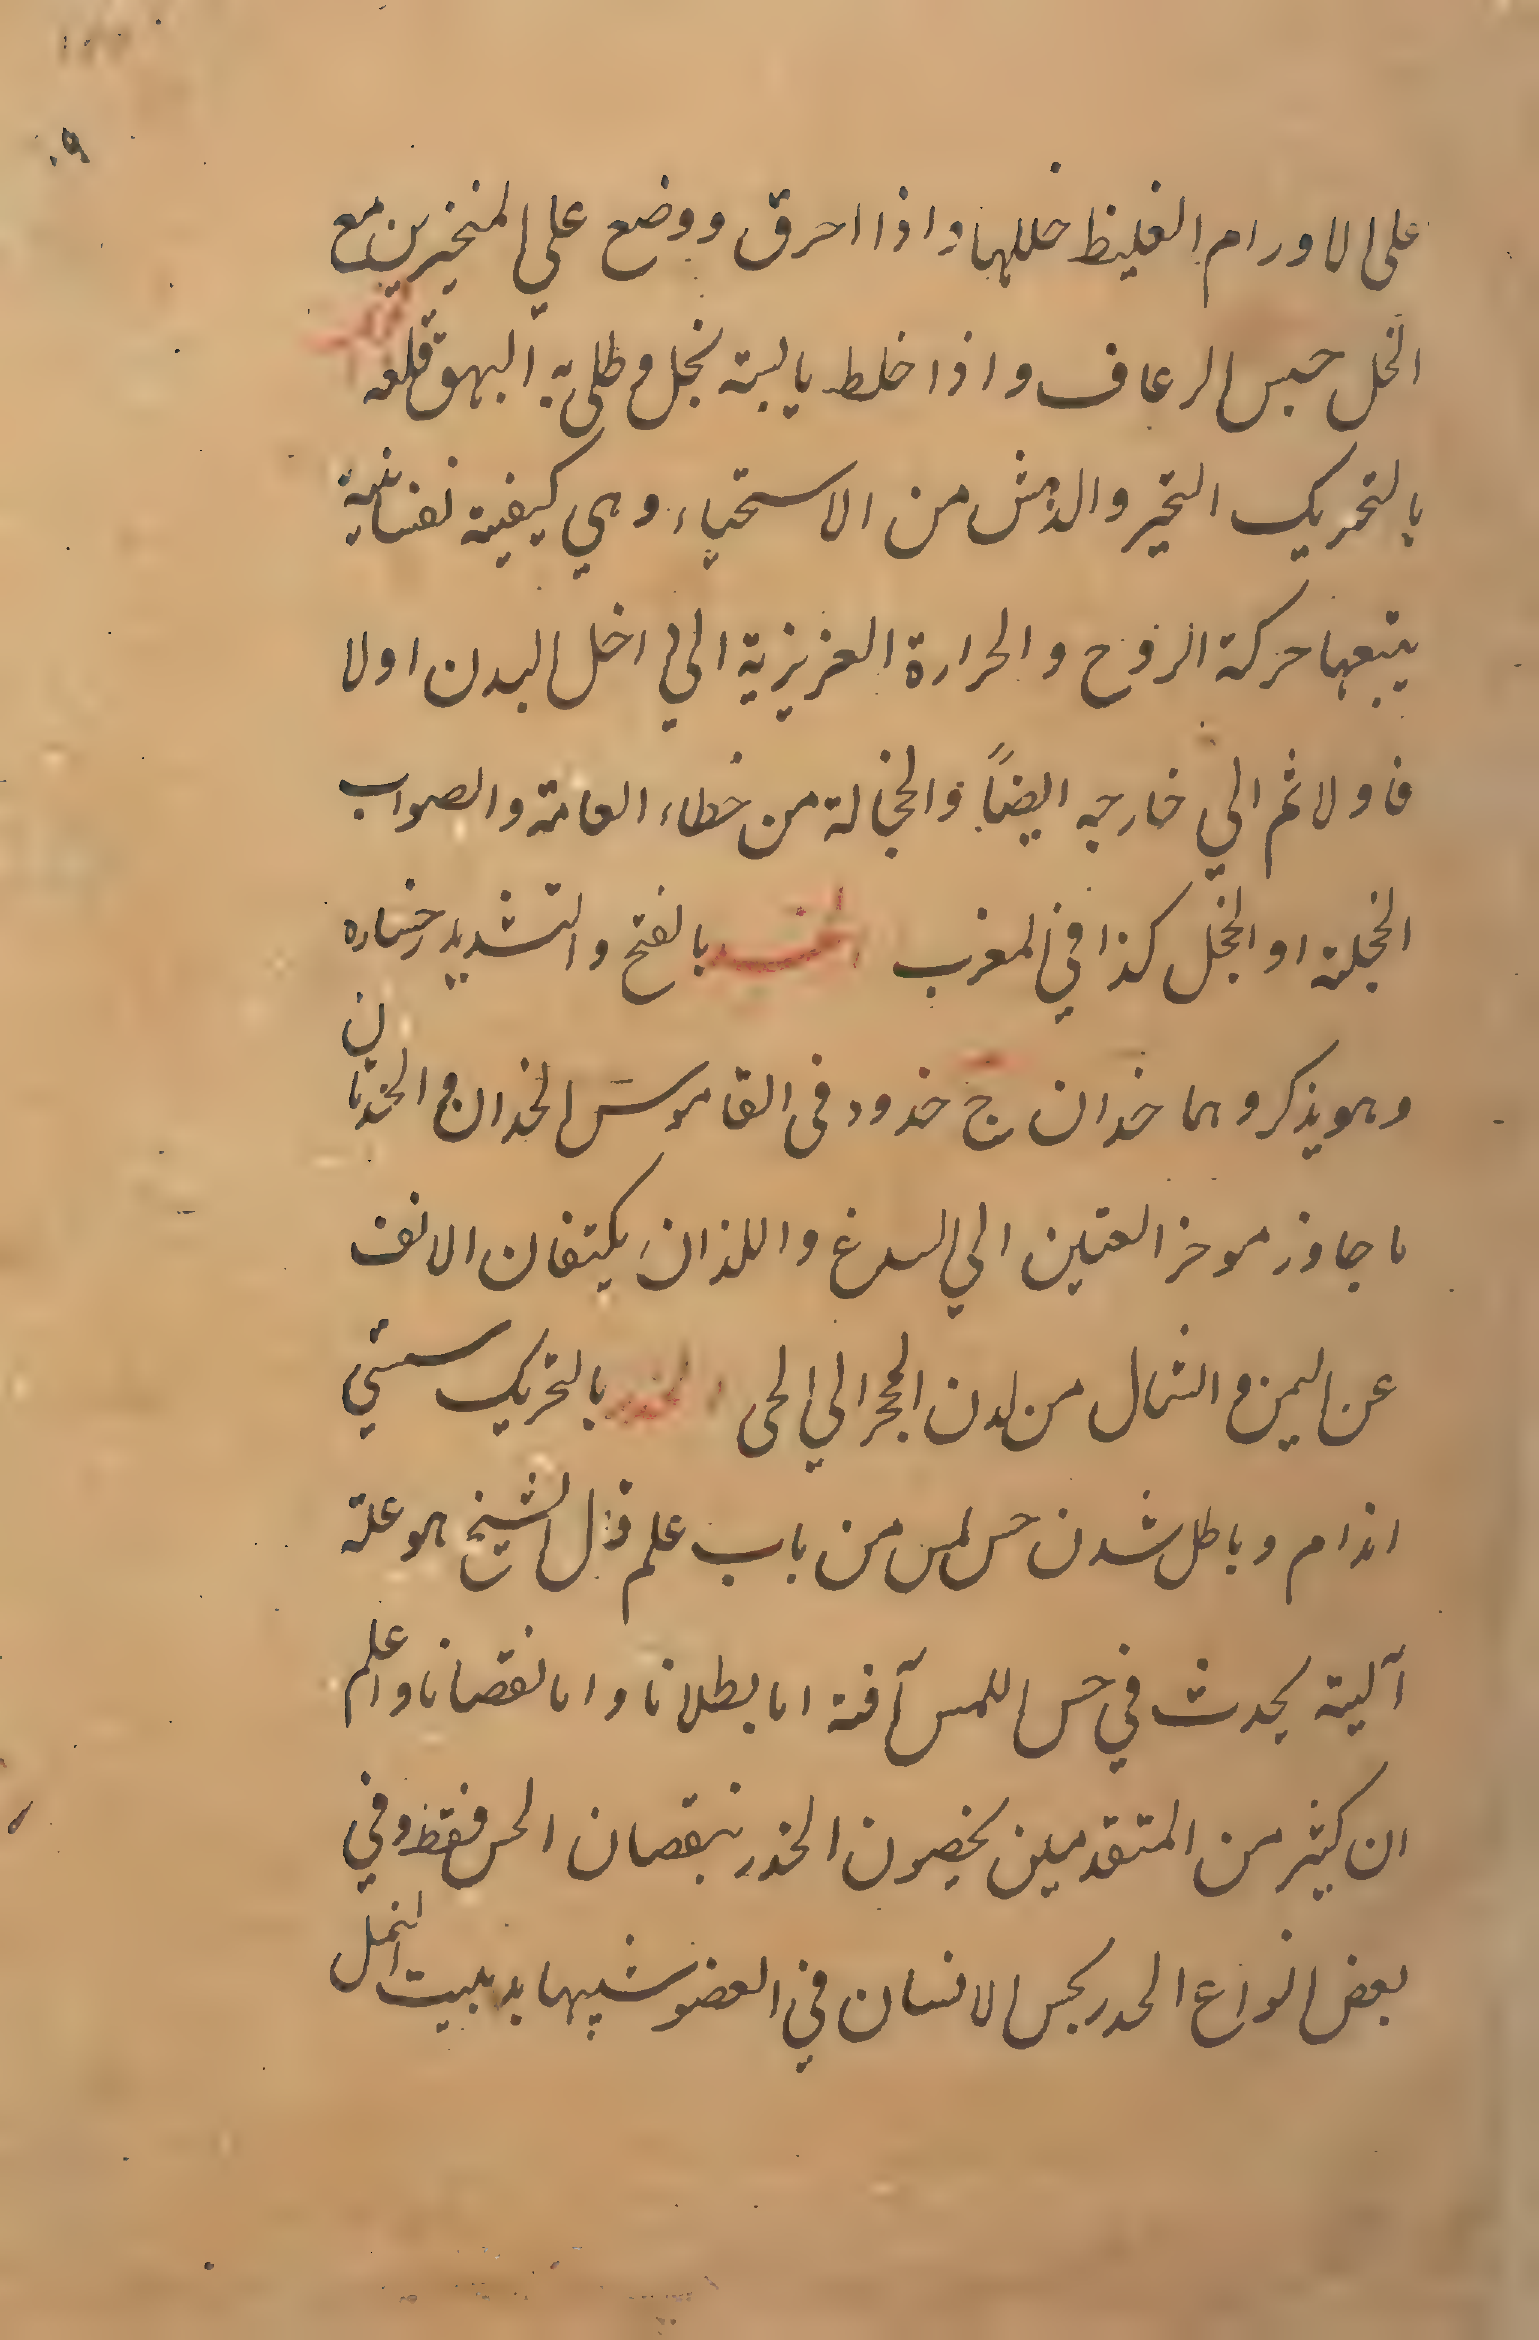 ٩٠
علی الاورام الغلیظ حللها واذا احرق ووضع علي المنخیرین مع
الخل حبس الرعاف واذا خلط یابسة بخل وطلی به البهق قلعه
بالتحریک التحیر والدهش من الاستحیاء وهي کیفیة نفسانیة
یتبعها حرکة الروح والحرارة الغریزیة الي داخل البدن اولا
فاولا ثم الي خارجه ایضاً والخجالة من خطاء العامة والصواب
الخجلة او الخجل کذا في المغرب الخد بالفتح والتشدید رخساره
وهو یذکر وهما خدان ج خدود فی القاموس الخدان والخدتان
ما جاوز موخر العینین الي السدغ واللذان یکتفان الانف
عن الیمین والشمال من لدن المحجر الي الحی الخدر بالتحریک سستي
اندام وباطل شدن حس لمس من باب علم قال الشیخ هو علة
آلیة یحدث في حس اللمس آفة اما بطلانا واما نقصانا واعلم
ان کثیر من المتقدمین یخصون الخدر بنقصان الحس فقط وفي
بعض انواع الحدر یحس الانسان في العضو شبیها بدبیب النمل